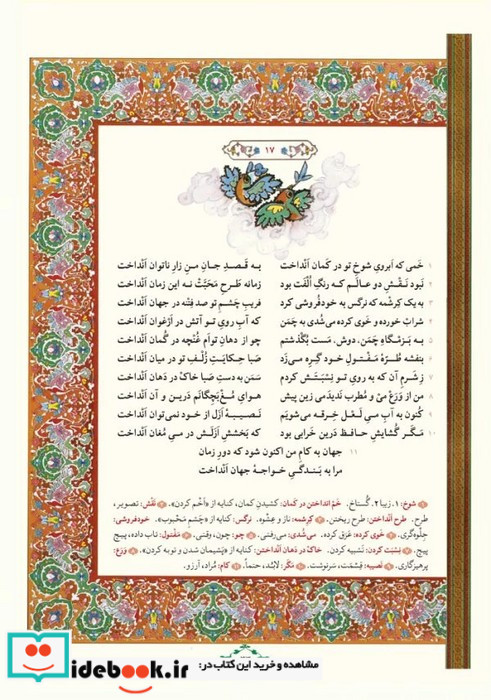 ۱۷
۱ خَمی که اَبرویِ شوخِ تو در کَمان اَنْداخت به قَصدِ جانِ منِ زارِ ناتوان اَنْداخت
۲ نَبود نَقْشِ دو عالَم که رنگِ اُلْفَت بود زمانه طَرحِ مَحَبَّت نه این زمان اَنْداخت
۳ به یک کِرِشمه که نَرگس به خودفُروشی کرد فَریبِ چَشمِ تو صد فِتْنه در جهان اَنْداخت
۴ شراب‌خورده و خَوی‌کرده می‌شُدی به چَمَن که آبِ رویِ تو آتَش در اَرْغَوان اَنْداخت
۵ به بَزمگاهِ چَمَن، دوش، مَست بُگْذشتم چو از دهانِ توأم غُنْچه در گُمان اَنْداخت
۶ بَنفشه طُرّهٔ مَفْتولِ خود گِرِه می‌زد صَبا حِکایَتِ زُلْفِ تو در میان اَنْداخت
۷ زِ شَرمِ آن که به رویِ تو نِسْبَتَش کردم سَمَن به دستِ صَبا خاک در دَهان اَنْداخت
۸ من از وَرَع می و مُطرب ندیدمی زین پیش هوایِ مُغْ‌بَچِگانم در این و آن اَنْداخت
۹ کُنون به آبِ میِ لَعل خِرقه می‌شویَم نَصیبهٔ اَزَل از خود نمی‌توان اَنْداخت
۱۰ مَگَر گُشایشِ حافظ دَرین خَرابی بود که بَخشِشِ اَزَلَش در میِ مُغان اَنْداخت
۱۱ جهان به کامِ من اکنون شود که دورِ زمان
مرا به بَندگیِ خواجهٔ جهان اَنْداخت
۱ شوخ: ۱. زیبا ۲. گُستاخ. خَمْ انْداختن در کَمان: کشیدنِ کمان، کنایه از «اَخْم کردن». ۲ نَقْش: تصویر،
طرح. طرح اَنْداختن: طرح ریختن. ۳ کِرِشمه: ناز و عِشوه. نَرگس: کنایه از «چَشمِ مَحبوب». خودفُروشی:
جِلْوه‌گری. ۴ خَوی کرده: عَرَق کرده. می‌شُدی: می‌رفتی. ۵ چو: چون، وقتی. ۶ مَفْتول: تاب داده، پیچ
پیچ. ۷ نِسْبَت کردن: تَشبیه کردن. خاک در دَهان اَنْداختن: کنایه از «پَشیمان شدن و توبه کردن». ۸ وَرَع:
پرهیزگاری. ۹ نَصیبه: قِسْمَت، سَرنوشت. ۱۰ مَگَر: لابُد، حتماً. ۱۱ کام: مُراد، آرزو.
مشاهده و خرید این کتاب در:
idebook.ir